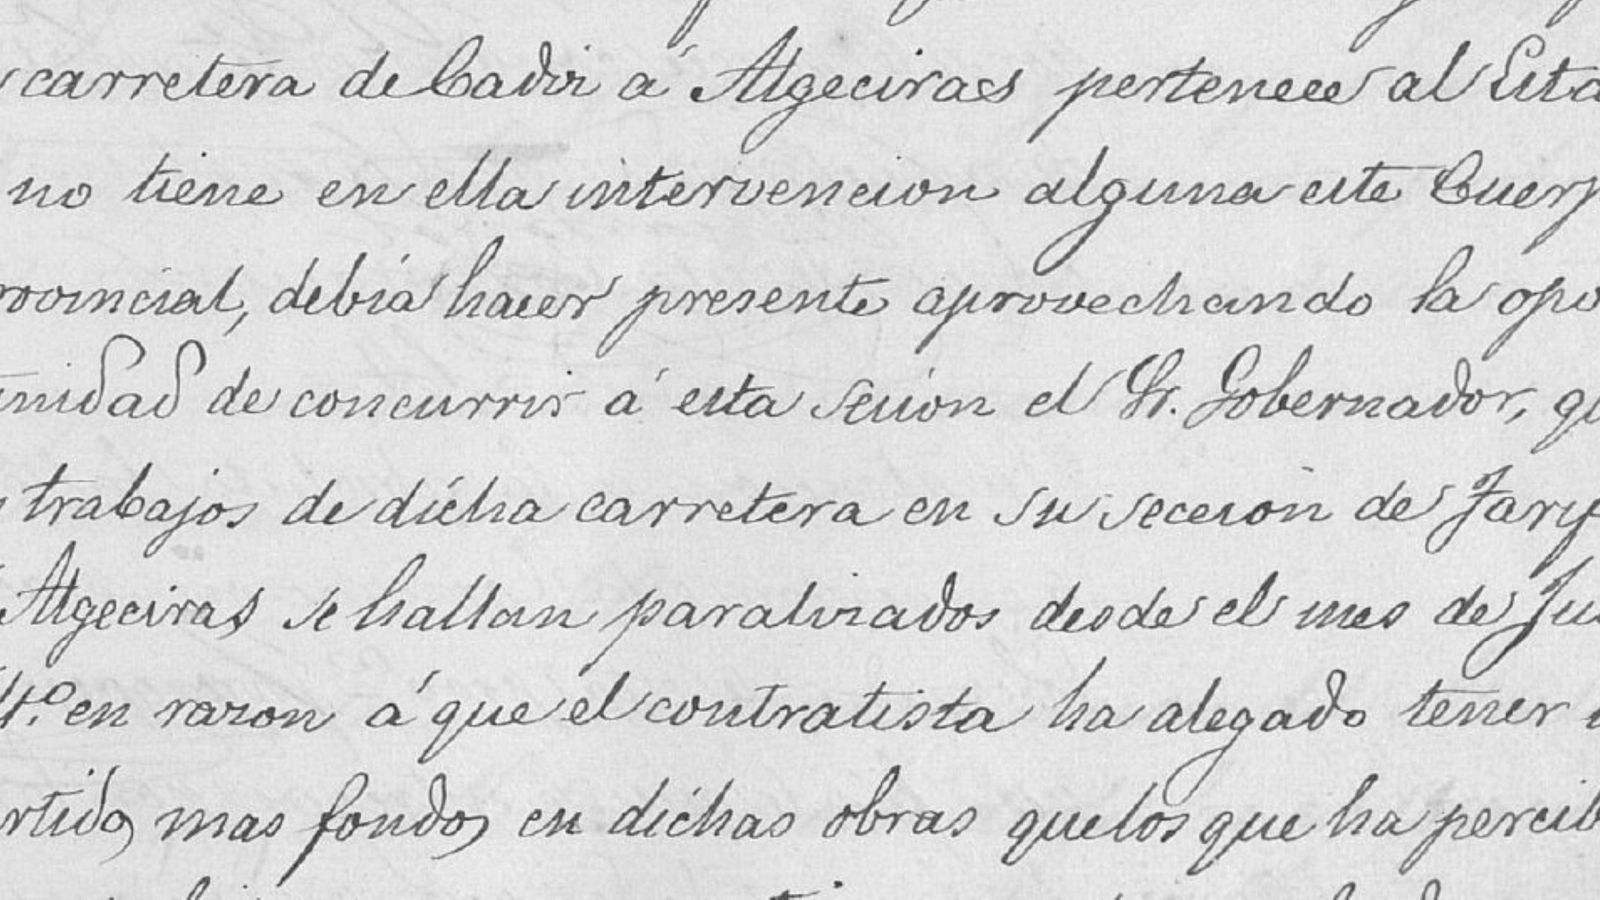 carretera de Cadiz á Algeciras pertenece al Esta
no tiene en ella intervencion alguna este Cuerp
rovincial, debia hacer presente aprovechando la opo
nidad de concurrir á esta sesion el Sr. Gobernador, qu
trabajos de dicha carretera en su seccion de Tarif
Algeciras se hallan paralizados desde el mes de Ju
lt.º en razon á que el contratista ha alegado tener
rtido mas fondos en dichas obras que los que ha percib